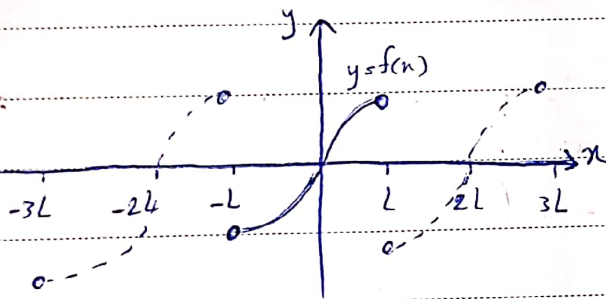 y
y=f(x)
x
-3L -2L -L L 2L 3L